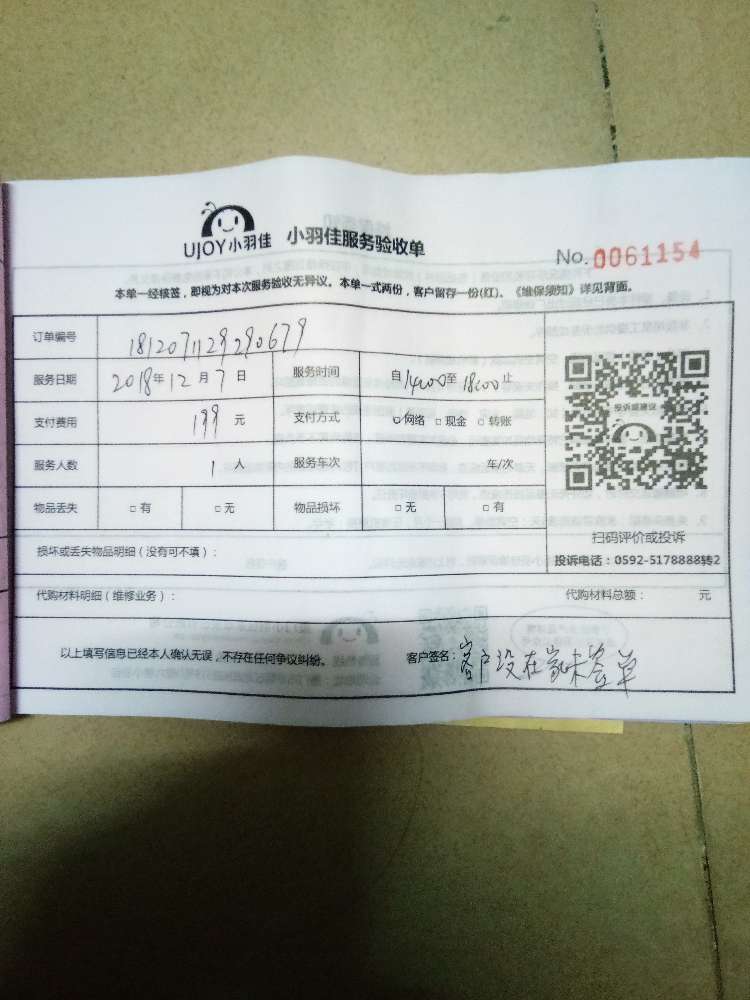 UJOY小羽佳 小羽佳服务验收单
No.0061154
本单一经核签，即视为对本次服务验收无异议。本单一式两份，客户留存一份(红)。《维保须知》详见背面。
订单编号 1812071129290679
服务日期 2018年12月7日 服务时间 自14:00至18:00止
支付费用 199元 支付方式 □网络 □现金 □转账
投诉或建议
服务人数 1人 服务车次 车/次
物品丢失 □有 □无 物品损坏 □无 □有
扫码评价或投诉
损坏或丢失物品明细（没有可不填）：
投诉电话：0592-5178888转2
代购材料明细（维修业务）： 代购材料总额： 元
以上填写信息已经本人确认无误，不存在任何争议纠纷。 客户签名：客户没在家未签单